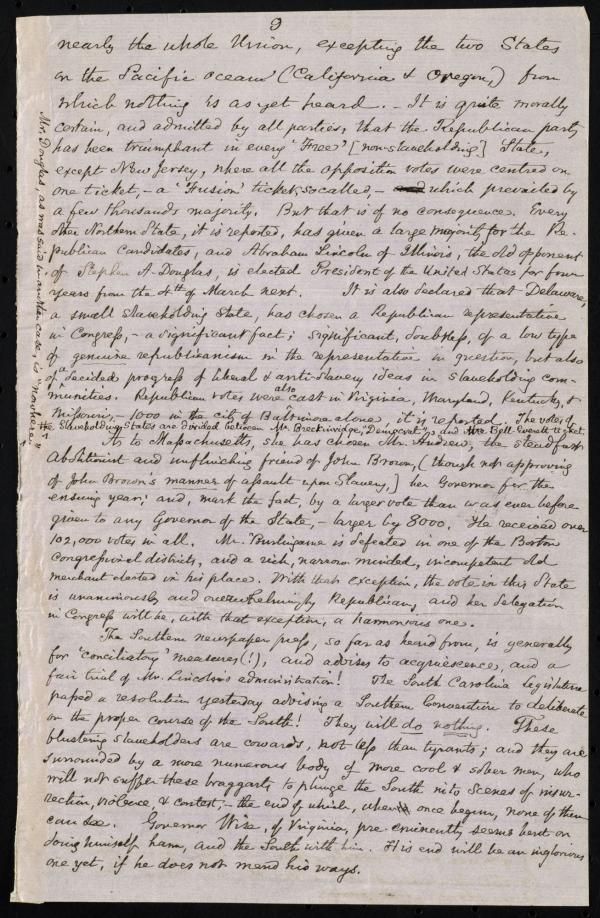 9
nearly the whole Union, excepting the two States
on the Pacific ocean (California & Oregon,) from
which nothing is as yet heard. – It is quite morally
certain, and admitted by all parties, that the Republican party
has been triumphant in every 'Free' [non-slaveholding] State,
except New Jersey, where all the opposition votes were centred on
one ticket, – a 'Fusion' ticket, so called, – which prevailed by
a few thousands majority. But that is of no consequence. Every
other Northern State, it is reported, has given a large majority for the Re-
publican candidates, and Abraham Lincoln of Illinois, the old opponent
of Stephen A. Douglas, is elected President of the United States for four
years from the 4th of March next. It is also declared that Delaware,
a small slaveholding State, has chosen a Republican representative
in Congress, – a significant fact; significant, doubtless, of a low type
of genuine republicanism in the representative in question, but also
of a decided progress of liberal & anti-slavery ideas in slaveholding com-
munities. Republican votes were also cast in Virginia, Maryland, Kentucky, &
Missouri, – 1000 in the city of Baltimore alone, it is reported. The votes of
the Slaveholding States are divided between Mr. Breckinridge, Democrat, and the Bell-Everett ticket.
Mr. Douglas, as was said in another case, is "nowhere."
As to Massachusetts, she has chosen Mr. Andrew, the steadfast
Abolitionist and unflinching friend of John Brown, (though not approving
of John Brown's manner of assault upon Slavery,) her Governor for the
ensuing year; and, mark the fact, by a larger vote than was ever before
given to any Governor of the State, – larger by 8000. He received over
102,000 votes in all. Mr. Burlingame is defeated in one of the Boston
Congressional districts, and a rich, narrow minded, incompetent old
merchant elected in his place. With that exception, the vote in this State
is unanimously and overwhelmingly Republican, and her delegation
in Congress will be, with that exception, a harmonious one.
The Southern newspaper press, so far as heard from, is generally
for 'conciliatory' measures (!), and advises to acquiescence, and a
fair trial of Mr. Lincoln's administration! The South Carolina Legislature
passed a resolution yesterday advising a Southern Convention to deliberate
on the proper course of the South! They will do nothing. These
blustering slaveholders are cowards, not less than tyrants; and they are
surrounded by a more numerous body of more cool & sober men, who
will not suffer these braggarts to plunge the South into scenes of insur-
rection, violence, & contest, – the end of which, when once begun, none of them
can see. Governor Wise, of Virginia, pre-eminently seems bent on
doing himself harm, and the South with him. His end will be an inglorious
one yet, if he does not mend his ways.